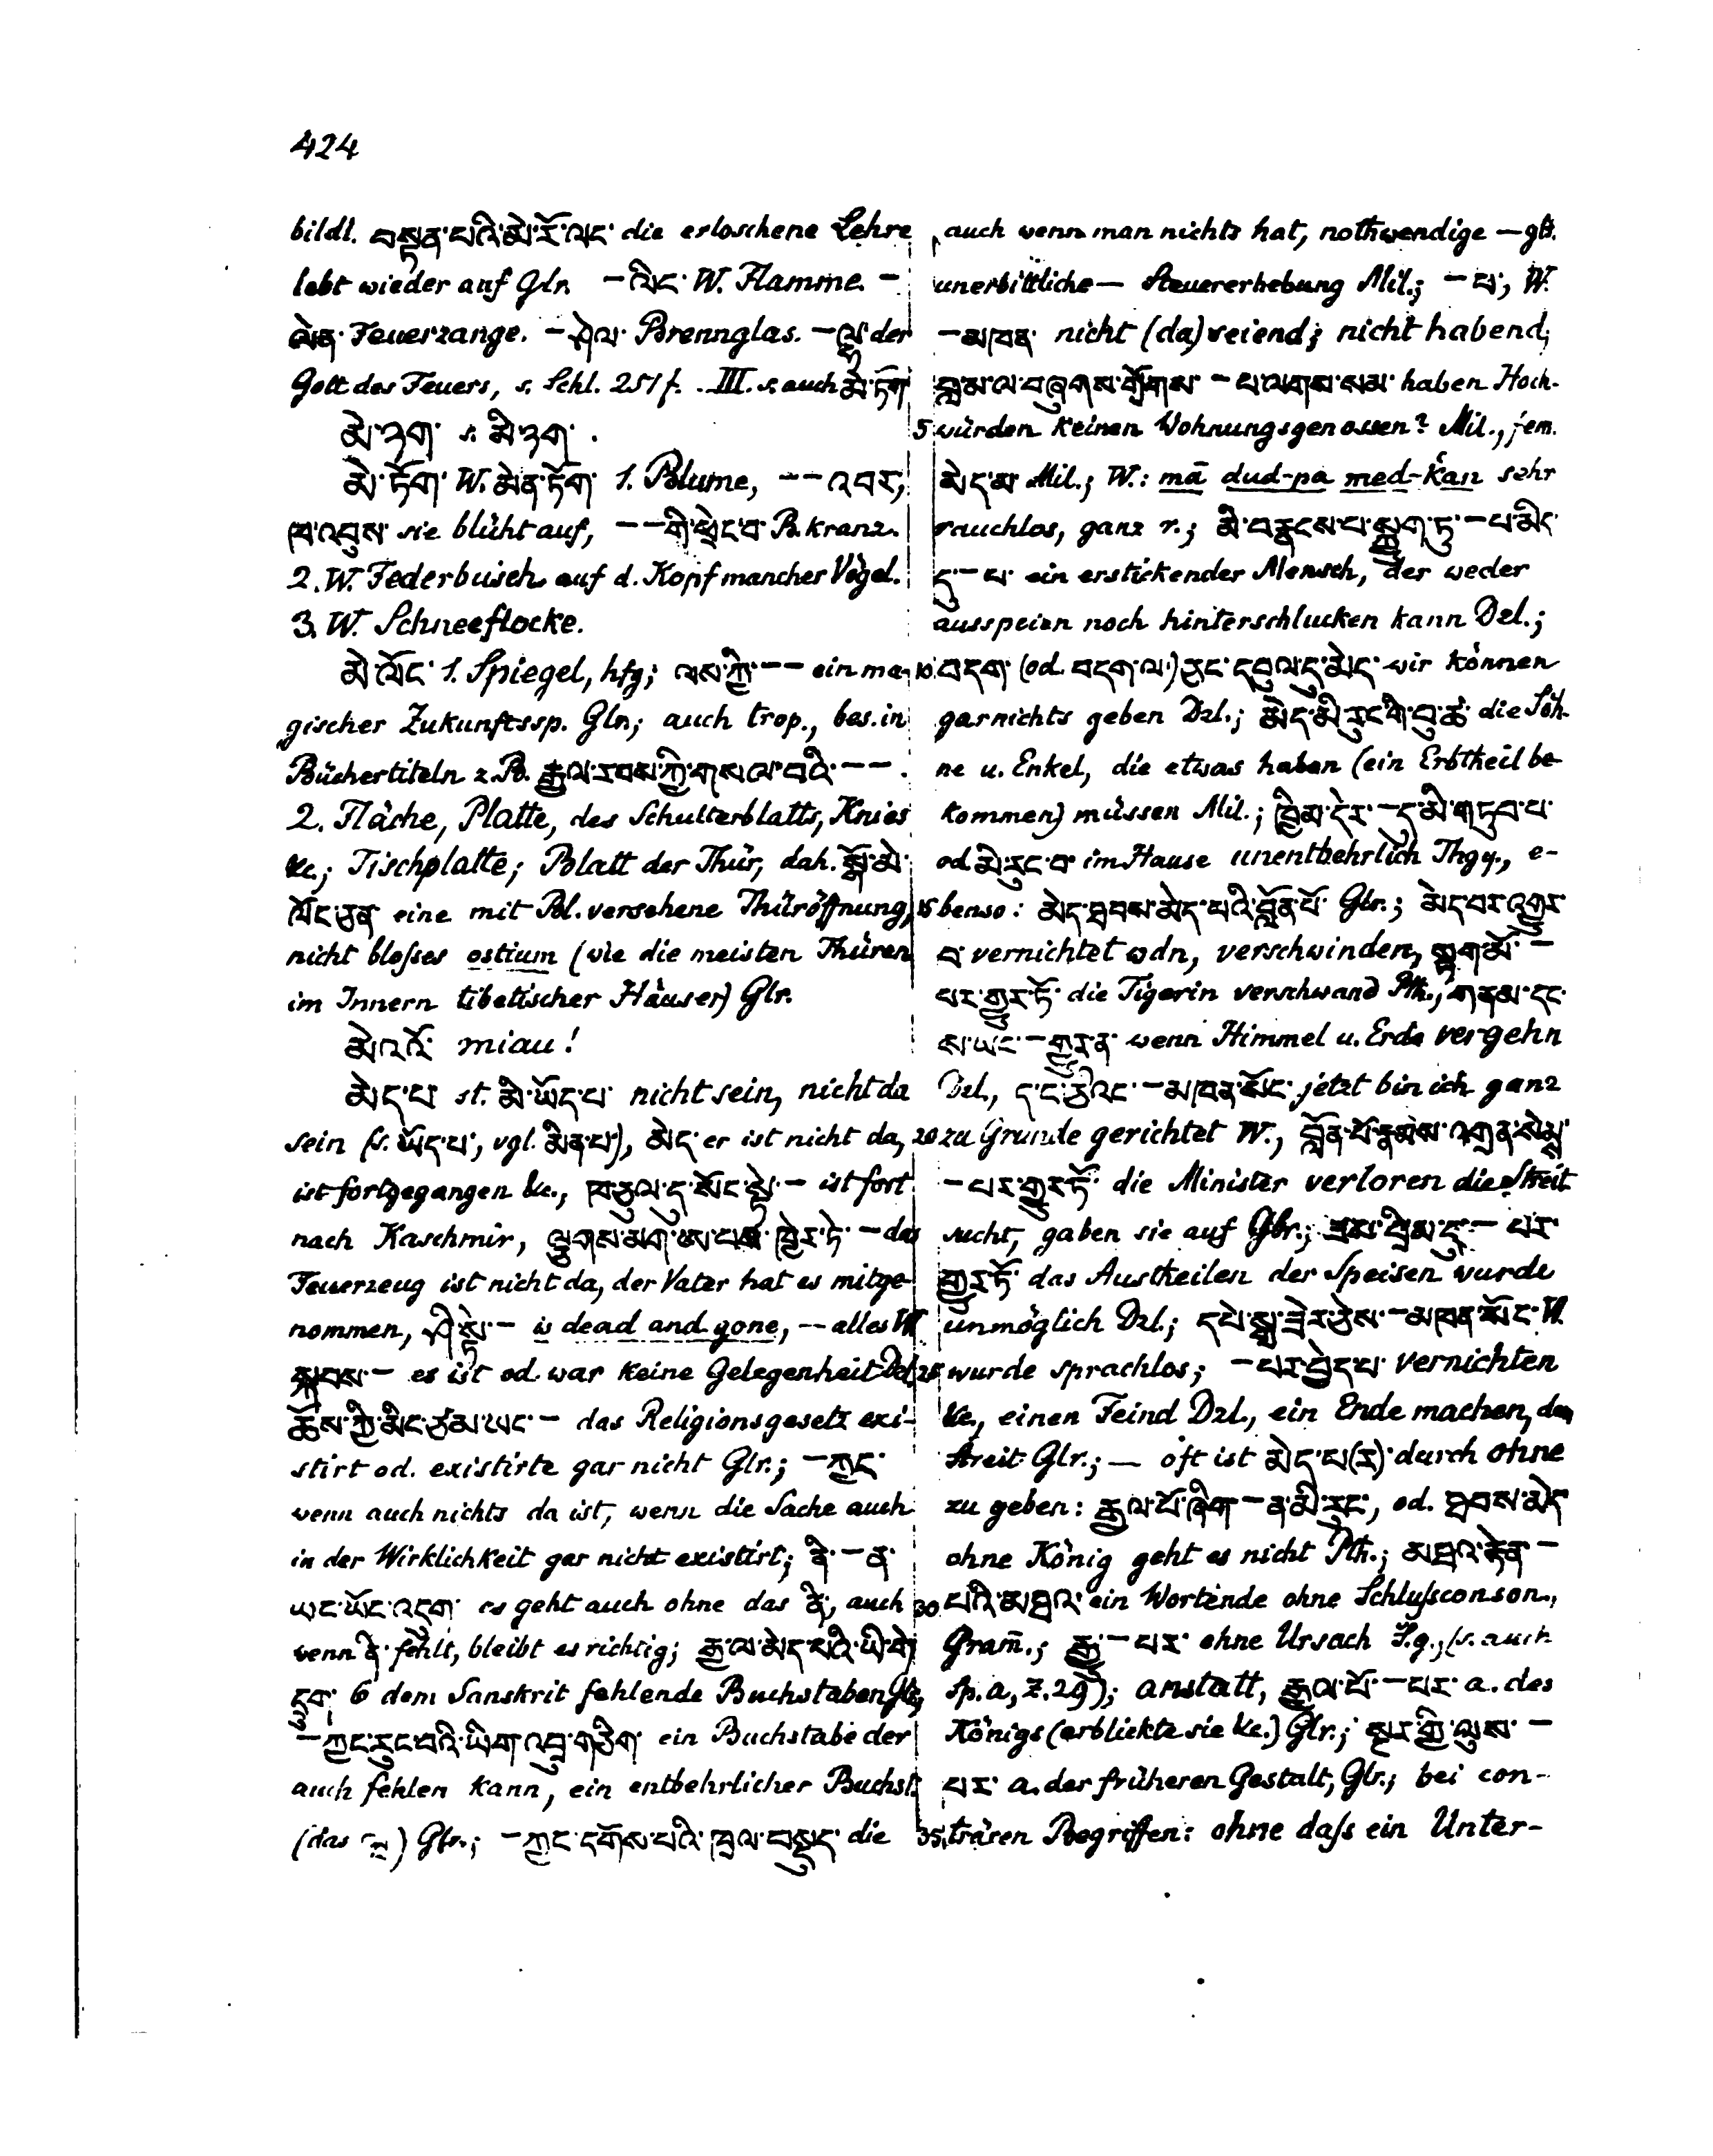 424
bildl. བསྟན་པའི་མེ་རོ་ལང་ die erloschene Lehre
lebt wieder auf Glr. –ལིང་ W. Flamme. –
ལེན་ Feuerzange. –ཤེལ་ Brennglas. –ལྷ་ der
Gott des Feuers, s. Schl. 251 f. III. s. auch མེ་ཏོག
མེ་ཏག་ s. མི་ཏག་.
མེ་ཏོག་ W. མེན་ཏོག་ 1. Blume, –– འབར,
ཁ་འབུས་ sie blüht auf, ––གི་ཕྲེང་བ་ B.kranz.
2. W. Federbusch auf d. Kopf mancher Vögel.
3. W. Schneeflocke.
མེ་ལོང་ 1. Spiegel, hfg; ལས་ཀྱི་–– ein ma-
gischer Zukunftssp. Glr.; auch trop., bes. in
Büchertiteln z.B. རྒྱལ་རབས་ཀྱི་གསལ་བའི་––.
2. Fläche, Platte, des Schulterblatts, Knies
&c.; Tischplatte; Blatt der Thür, dah. སྒོ་མེ་
ལོང་ཅན་ eine mit Bl. versehene Thüröffnung,
nicht bloſses ostium (wie die meisten Thüren
im Innern tibetischer Häuser) Glr.
མེའའོ་ miau!
མེད་པ་ st. མི་ཡོད་པ་ nicht sein, nicht da
sein (s. ཡོད་པ་, vgl. མིན་པ་), མེད་ er ist nicht da,
ist fortgegangen &c., ཁ་ཅུལ་དུ་སོང་སྟེ་– ist fort
nach Kaschmir, ལྕགས་མག་ཨ་པས་ཁྱེར་ཏེ་– das
Feuerzeug ist nicht da, der Vater hat es mitge-
nommen, ཤི་སྟེ་– is dead and gone, –– alles W.
སྐབས་– es ist od. war keine Gelegenheit Dzl.
ཆོས་ཀྱི་མིང་ཙམ་ཡང་– das Religionsgesetz exi-
stirt od. existirte gar nicht Glr.; –ཀྱང་
wenn auch nichts da ist, wenn die Sache auch
in der Wirklichkeit gar nicht existirt; ནི་–ན་
ཡང་ཡོང་འདུག་ es geht auch ohne das ནི, auch
wenn ནི་ fehlt, bleibt es richtig; རྒྱ་ལ་མེད་པའི་ཡི་གེ་
དྲུག་ 6 dem Sanskrit fehlende Buchstaben Glr.,
–ཀྱང་རུང་བའི་ཡིག་འབྲུ་གཅིག་ ein Buchstabe der
auch fehlen kann, ein entbehrlicher Buchst.
(das ) Glr.; –ཀྱང་དགོས་པའི་ཁྲལ་བསྡུད་ die
auch wenn man nichts hat, nothwendige – gls.
unerbittliche – Steuererhebung Mil.; –པ་, W.
–མཁན་ nicht (da) seiend; nicht habend;
བླ་མ་ལ་བཞུགས་གྲོགས་–པ་ལགས་སམ་ haben Hoch-
5 würden keinen Wohnungsgenossen? Mil., fem.
མེད་མ་ Mil.; W.: mā dud-pa med-k̔an sehr
rauchlos, ganz r.; མི་བརྣངས་པ་སྐྱུག་ཏུ་–པ་མིད་
དུ་–པ་ ein erstickender Mensch, der weder
ausspeien noch hinterschlucken kann Dzl.;
10 བདག་ (od. བདག་ལ་) ཅང་དབུལ་དུ་མེད་ wir können
garnichts geben Dzl.; མེད་མི་རུང་གི་བུ་ཚ་ die Söh-
ne u. Enkel, die etwas haben (ein Erbtheil be-
kommen) müssen Mil.; ཁྱིམ་དེར་–དུ་མི་གཏུབ་པ་
od. མི་རུང་བ་ im Hause unentbehrlich Thgy., e-
15 benso: མེད་ཐབས་མེད་པའི་བློན་པོ་ Glr.; མེད་བར་འགྱུར་
བ་ vernichtet wdn, verschwinden, སྟག་མོ་–
པར་གྱུར་ཏོ་ die Tigerin verschwand Pth.; གནམ་དང་
ས་ཡང་–གྱུར་ན་ wenn Himmel u. Erde vergehn
Dzl., ད་ང་ཅིའང་–མཁན་སོང་ jetzt bin ich ganz
20 zu Grunde gerichtet W., བློན་པོ་རྣམས་འགྲན་སེམས་
–པར་གྱུར་ཏོ་ die Minister verloren die Streit-
sucht, gaben sie auf Glr.; ཟས་བྲིམ་དུ་–པར་
གྱུར་ཏོ་ das Austheilen der Speisen wurde
unmöglich Dzl.; དཔེ་སྒྲ་ཟེར་ཅེས་–མཁན་སོང་ W.
25 wurde sprachlos; –པར་བྱེད་པ་ vernichten
&c., einen Feind Dzl., ein Ende machen, dem
Streit Glr.; – oft ist མེད་པ(ར)་ durch ohne
zu geben: རྒྱལ་པོ་ཞིག་–ན་མི་རུང་, od. ཐབས་མེད་
ohne König geht es nicht Pth.; མཐའ་རྟེན་–
30 པའི་མཐའ་ ein Wortende ohne Schluſsconson.,
Gram̄.; རྒྱུ་–པར་ ohne Ursach S.g., (s. auch
Sp. a, Z. 29); anstatt, རྒྱལ་པོ་–པར་ a. des
Königs (erblickte sie &c.) Glr.; སྔར་གྱི་ལུས་–
པར་ a. der früheren Gestalt, Glr.; bei con-
35 trären Begriffen: ohne daſs ein Unter-